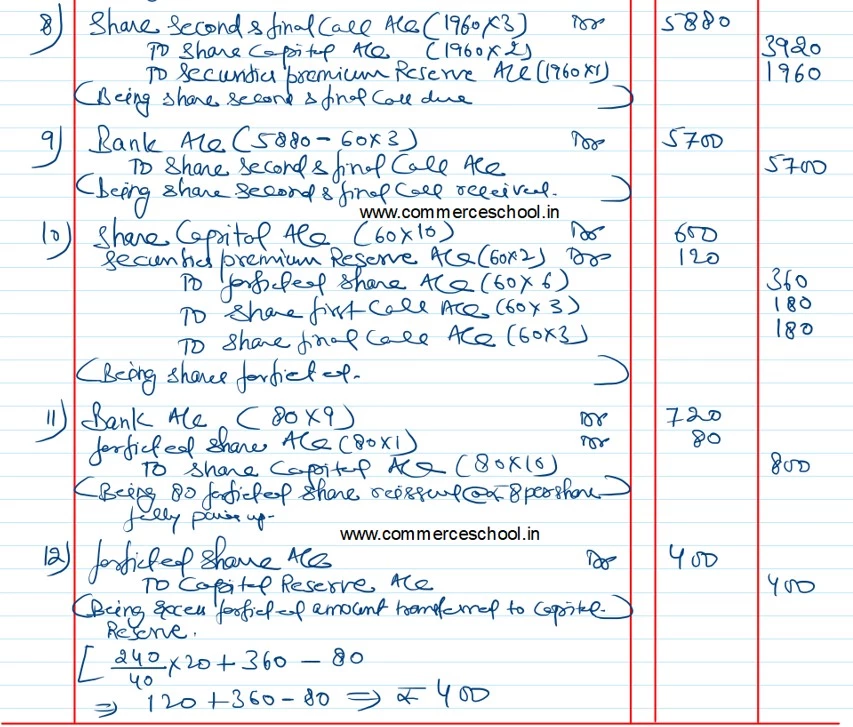 8) Share Second & final Call A/c (1960×3) Dr 5880
To Share Capital A/c (1960×2) 3920
To Securities premium Reserve A/c (1960×1) 1960
(Being share second & final Call due)
9) Bank A/c (5880 - 60×3) Dr 5700
To Share Second & final Call A/c 5700
(Being share second & final Call received.)
www.commerceschool.in
10) Share Capital A/c (60×10) Dr 600
Securities premium Reserve A/c (60×2) Dr 120
To forfieted Share A/c (60×6) 360
To Share first Call A/c (60×3) 180
To Share final Call A/c (60×3) 180
(Being shares forfieted.)
11) Bank A/c (80×9) Dr 720
forfieted Share A/c (80×1) Dr 80
To Share Capital A/c (80×10) 800
(Being 80 forfieted Share reissued @ ₹ 8 per share
fully paid up.
www.commerceschool.in
12) forfieted Share A/c Dr 400
To Capital Reserve A/c 400
(Being excess forfieted amount transferred to Capital)
Reserve.
[ 240/40 × 20 + 360 - 80
⇒ 120 + 360 - 80 ⇒ ₹ 400